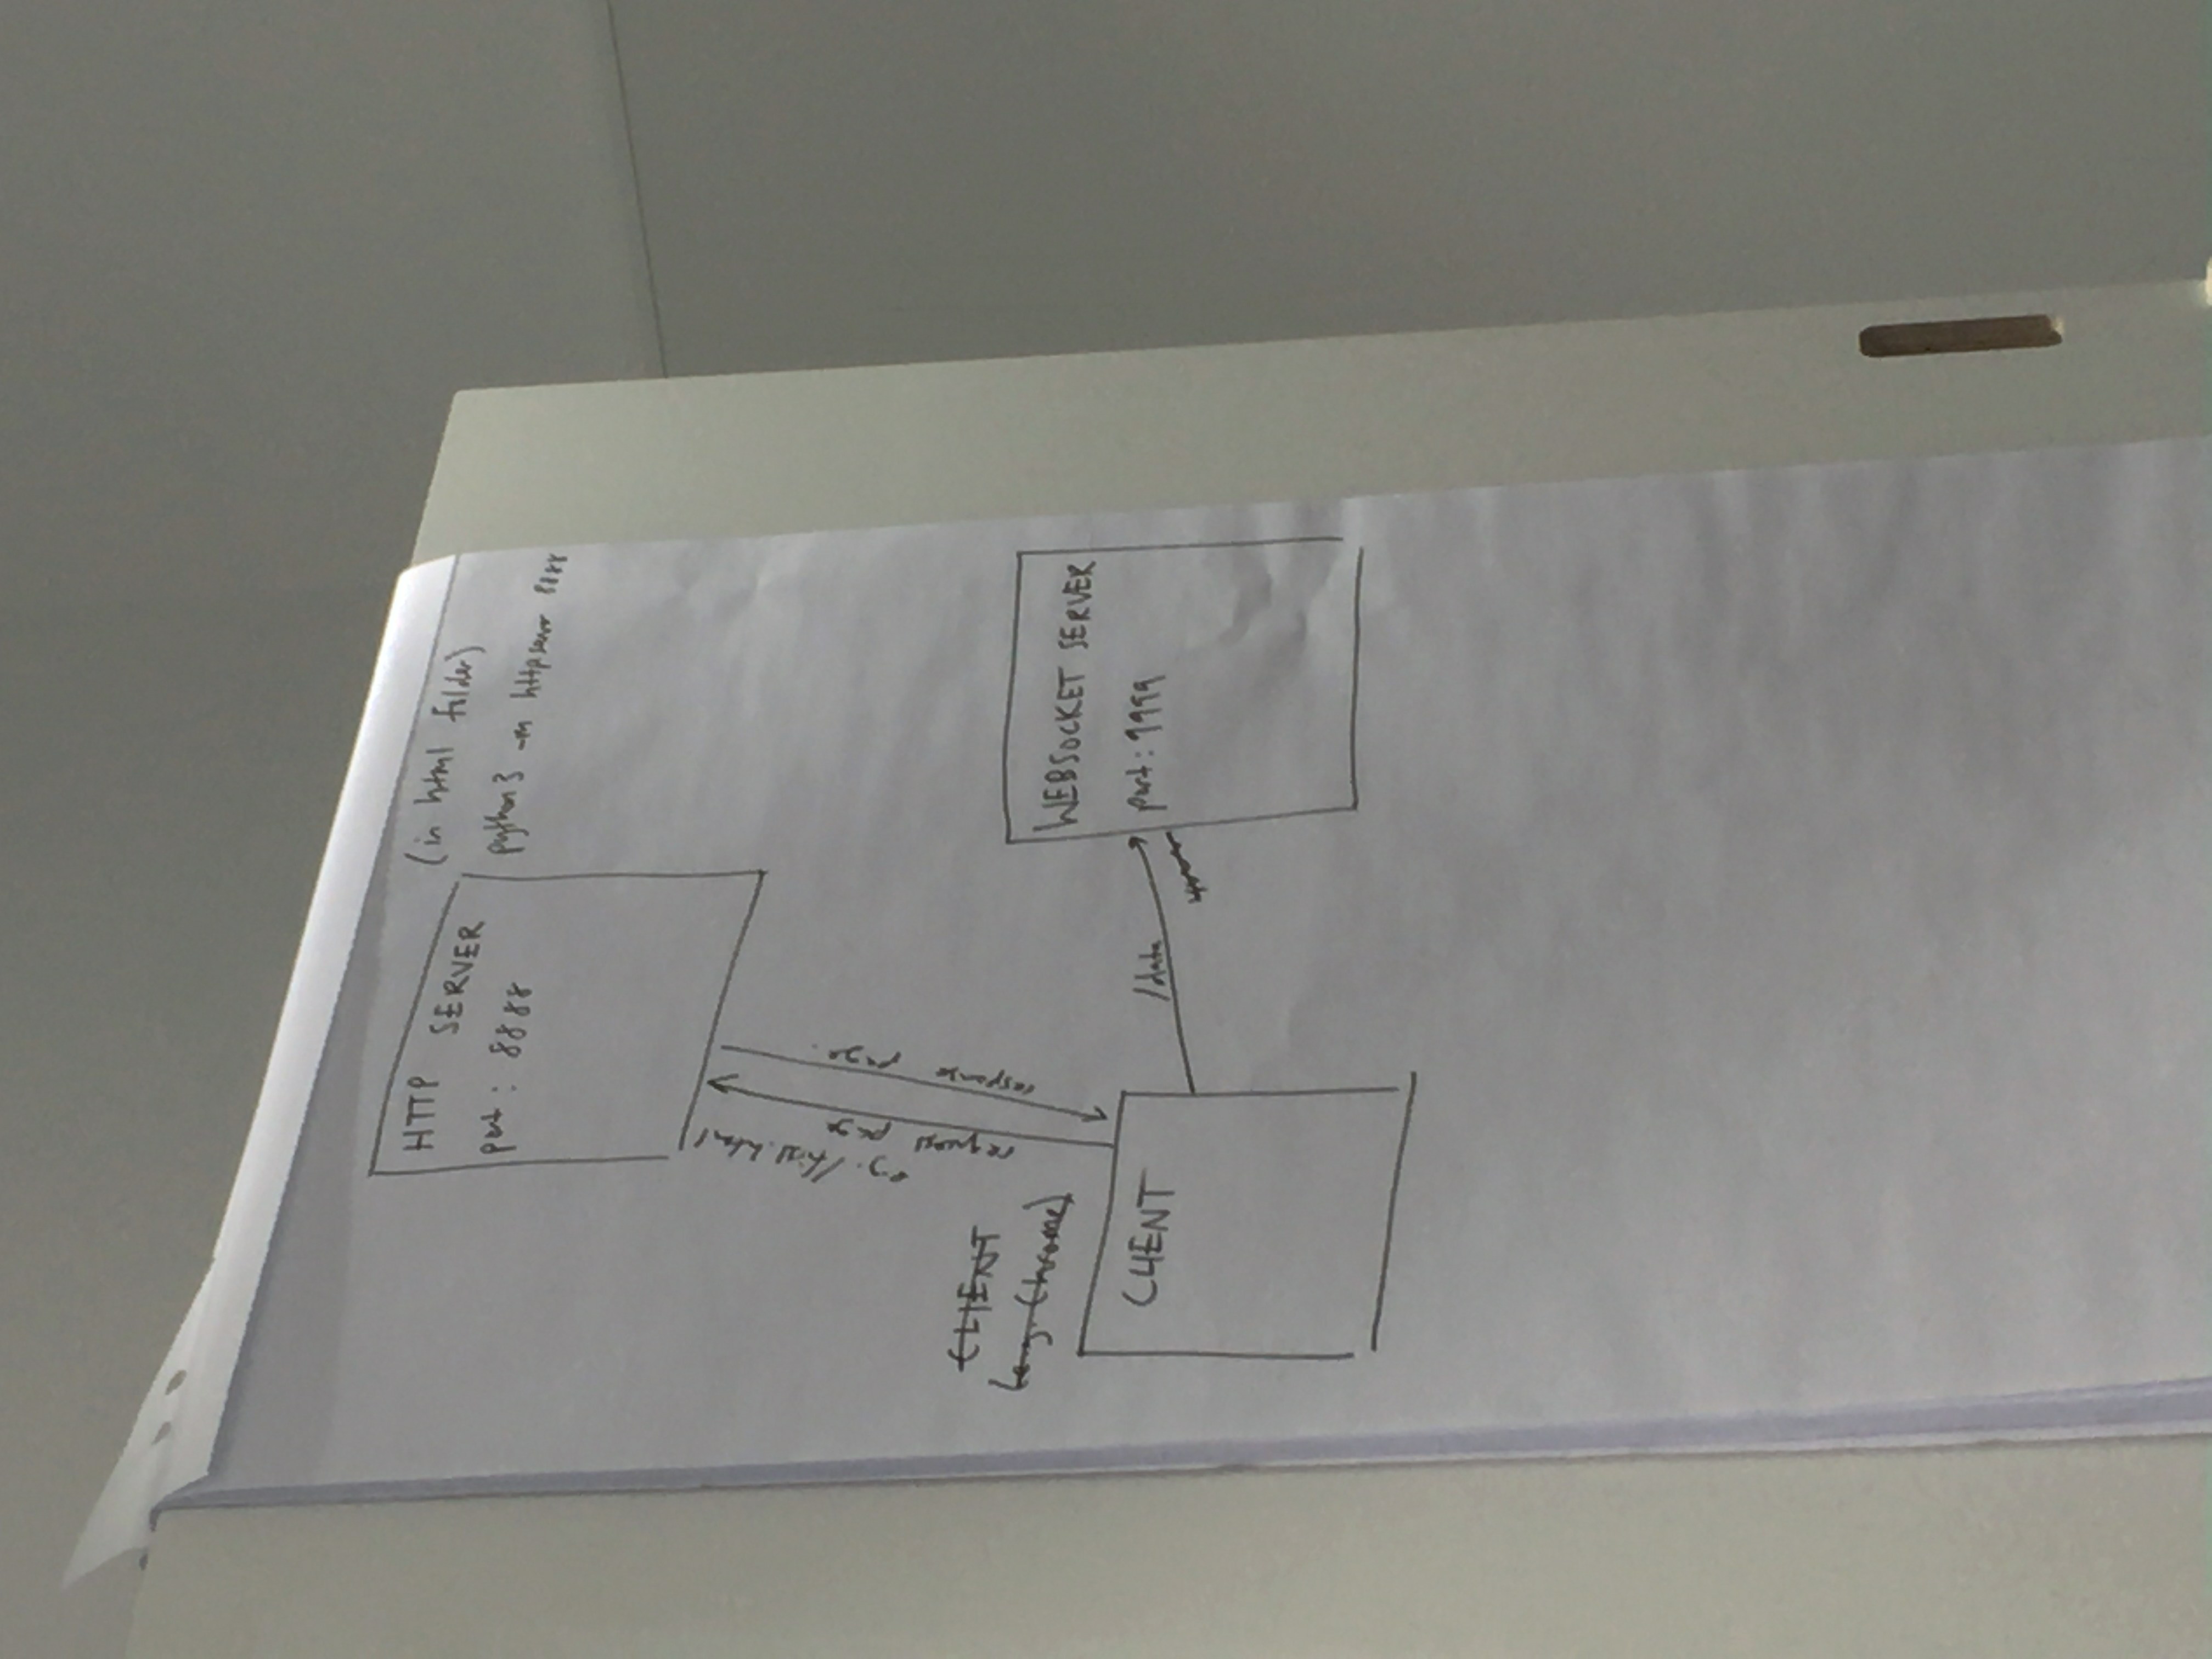 HTTP SERVER
port: 8888
(in html folder)
python3 -m http.server 8888
e.g. /first.html
request page
response page.
CLIENT
(e.g. Chrome)
CLIENT
/data
WEBSOCKET SERVER
port: 9999